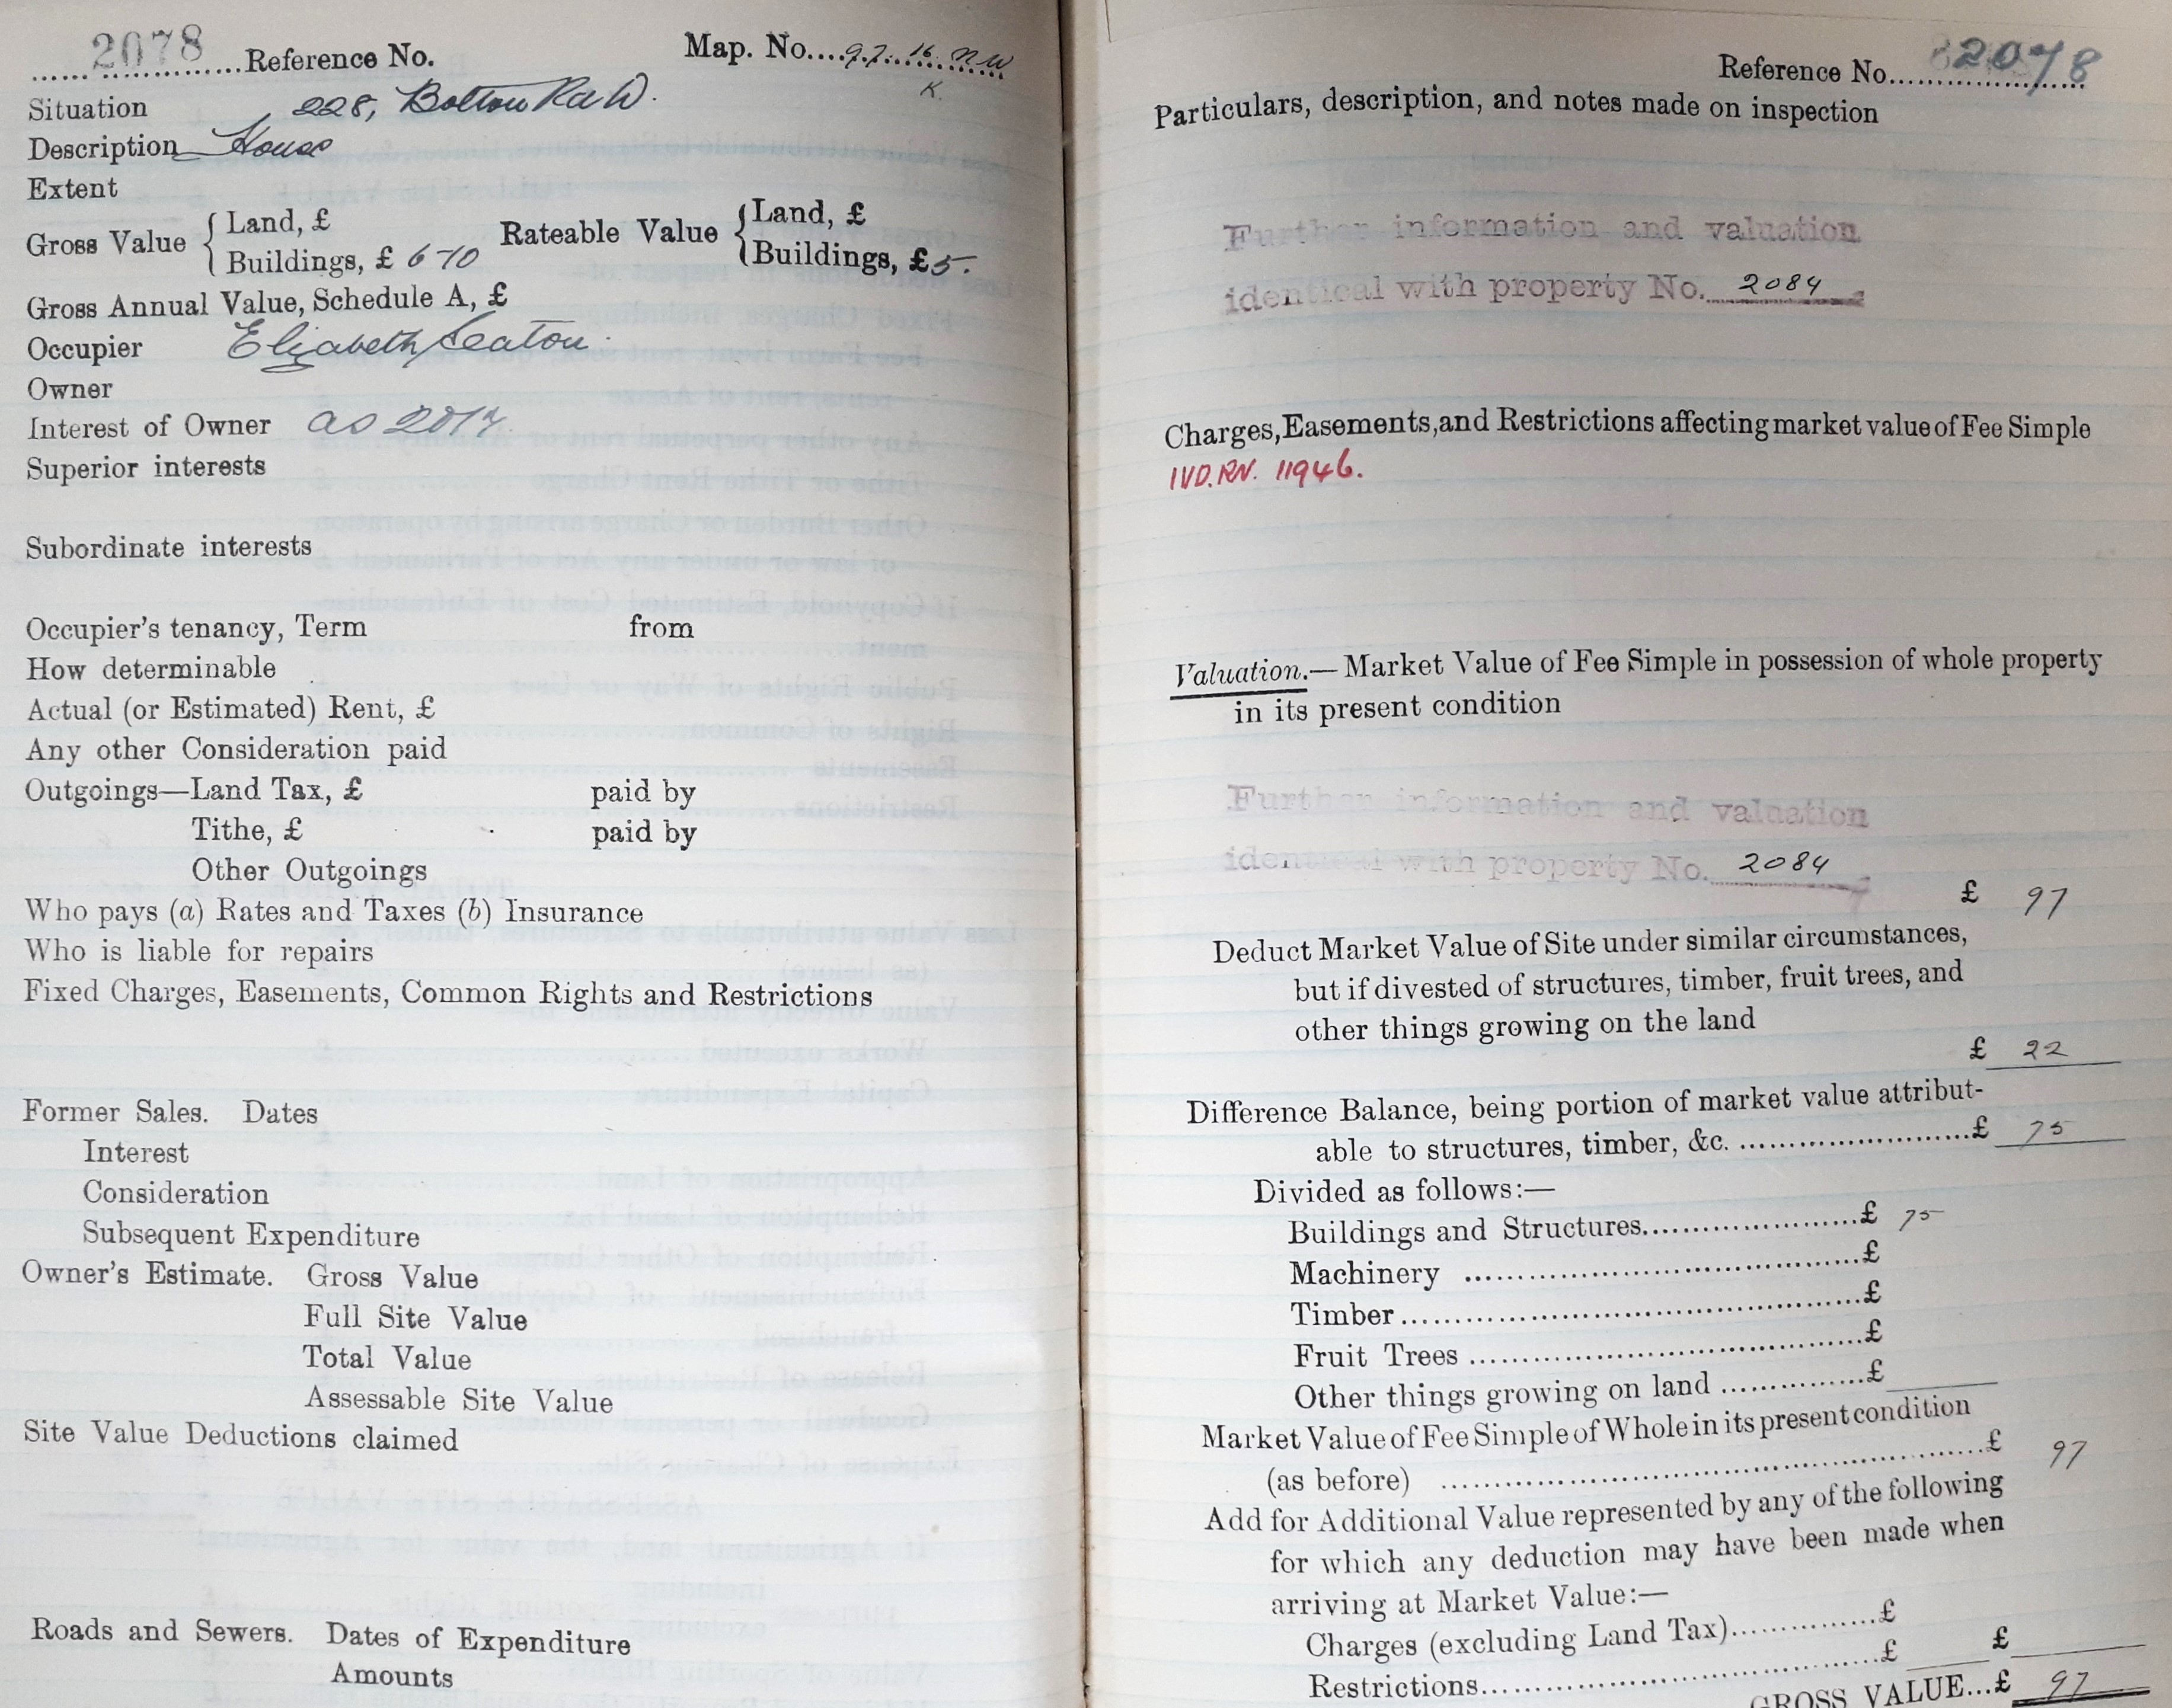 2078 Reference No. Map. No. 97.16 NW
K.
Situation 228, Bolton Rd W.
Description House
Extent
Gross Value { Land, £ Rateable Value { Land, £
Buildings, £ 6-10 Buildings, £5-.
Gross Annual Value, Schedule A, £
Occupier Elizabeth Seaton.
Owner
Interest of Owner as
Superior interests
Subordinate interests
Occupier's tenancy, Term from
How determinable
Actual (or Estimated) Rent, £
Any other Consideration paid
Outgoings—Land Tax, £ paid by
Tithe, £ paid by
Other Outgoings
Who pays (a) Rates and Taxes (b) Insurance
Who is liable for repairs
Fixed Charges, Easements, Common Rights and Restrictions
Former Sales. Dates
Interest
Consideration
Subsequent Expenditure
Owner's Estimate. Gross Value
Full Site Value
Total Value
Assessable Site Value
Site Value Deductions claimed
Roads and Sewers. Dates of Expenditure
Amounts
Reference No. 2078
Particulars, description, and notes made on inspection
Further information and valuation
identical with property No. 2084
Charges, Easements, and Restrictions affecting market value of Fee Simple
IVD.RN. 11946.
Valuation.—Market Value of Fee Simple in possession of whole property
in its present condition
Further information and valuation
identical with property No. 2084
£ 97
Deduct Market Value of Site under similar circumstances,
but if divested of structures, timber, fruit trees, and
other things growing on the land
£ 22
Difference Balance, being portion of market value attribut-
able to structures, timber, &c. £ 75
Divided as follows:—
Buildings and Structures £ 75
Machinery £
Timber £
Fruit Trees £
Other things growing on land £
Market Value of Fee Simple of Whole in its present condition
(as before) £ 97
Add for Additional Value represented by any of the following
for which any deduction may have been made when
arriving at Market Value:—
Charges (excluding Land Tax) £
Restrictions £ £
GROSS VALUE...£ 97